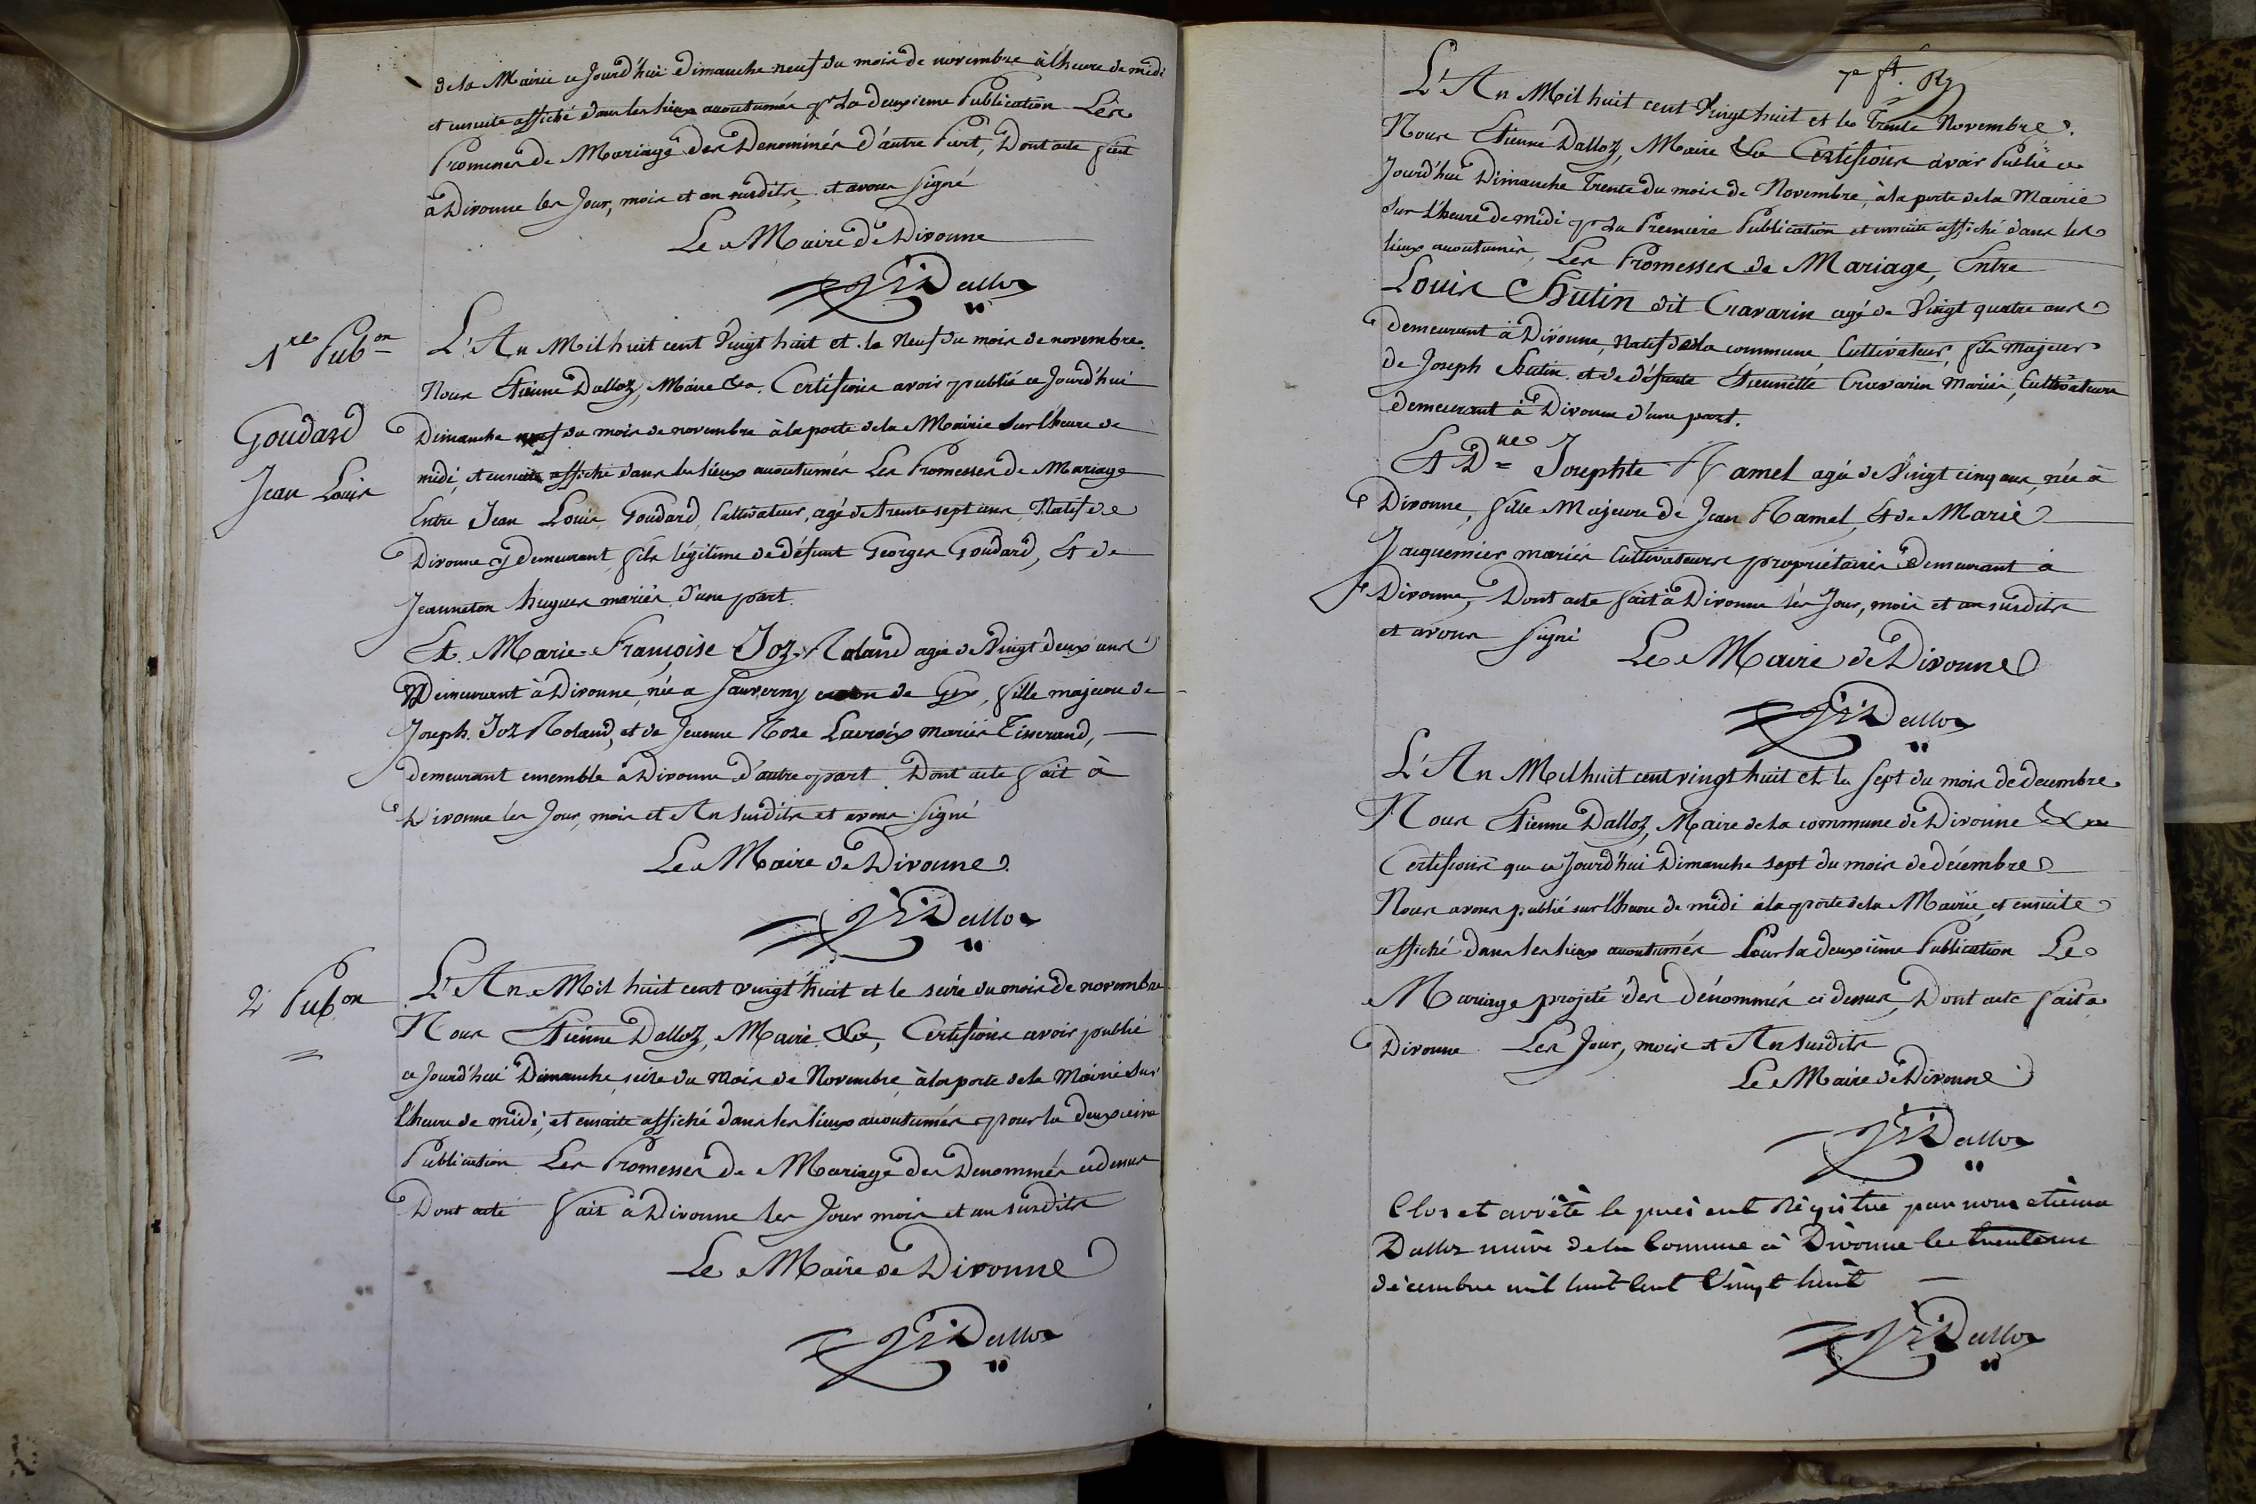 de la Mairie ce Jourd'hui Dimanche neuf du mois de novembre à l'heure de midi
et ensuite affiché dans les lieux accoutumés pr la deuxieme Publication Les
Promesses de Mariage des Denommés d'autre Part, Dont acte fait
à Divonne les Jour, mois et an susdits, et avons signé
Le Maire de Divonne
Dalloz
1re Pubon
L'An Mil huit cent Vingt huit et le Neuf du mois de novembre.
Nous Etienne Dalloz, Maire &a. Certifions avoir publié ce Jourd'hui
Goudard
Jean Louis
Dimanche neuf du mois de novembre à la porte de la Mairie sur l'heure de
midi, et ensuite affiché dans les lieux accoutumés Les Promesses de Mariage
Entre Jean Louis Goudard, Cultivateur, agé de trente sept ans, Natif de
Divonne y demeurant, fils légitime de défunt Georges Goudard, Et de
Jeanneton hugues mariés d'une part.
Et Marie Françoise Joz-Roland agée de Vingt deux ans
Demeurant à Divonne, née a Sauverny de Gex, fille majeure de
Joseph Joz Roland, et de Jeanne Roze Lacroix mariés Tisserand,
demeurant ensemble à Divonne d'autre part. Dont acte fait à
Divonne les Jour, mois et An susdits et avons signé
Le Maire de Divonne
Dalloz
2e Pubon
L'An Mil huit cent vingt huit et le seize du mois de novembre
Nous Etienne Dalloz, Maire &a, Certifions avoir publié
ce Jourd'hui Dimanche seize du Mois de Novembre, à la porte de la Mairie sur
l'heure de midi, et ensuite affiché dans les lieux accoutumés pour la deuxieme
Publication Les Promesses de Mariage des Denommés ci dessus
Dont acte fait à Divonne les Jour mois et an susdits
Le Maire de Divonne
Dalloz
L'An Mil huit cent Vingt huit et le Trente Novembre.
Nous Etienne Dalloz, Maire &a Certifions avoir Publié ce
Jourd'hui Dimanche Trente du mois de Novembre, à la porte de la Mairie
sur l'heure de midi pr la Premiere Publication et ensuite affiché dans les
lieux accoutumés, Les Promesses de Mariage, Entre
Louis Hutin dit Cravarin agé de Vingt quatre ans
demeurant à Divonne, Natif de la commune, Cultivateur, fils Majeur
de Joseph Hutin et de défunte Etiennette Cravarin Mariés, Cultivateurs
demeurant à Divonne d'une part.
Et Dne Josephte Ramel agée de Vingt cinq ans, née à
Divonne, fille Majeure de Jean Ramel, Et de Marie
Jacquemier mariés Cultivateurs propriétaires Demeurant à
Divonne, Dont acte fait à Divonne les Jour, mois et an susdits
et avons signé
Le Maire de Divonne
Dalloz
L'An Mil huit cent vingt huit et le sept du mois de décembre
Nous Etienne Dalloz, Maire de la commune de Divonne &a
Certifions que ce Jourd'hui Dimanche sept du mois de décembre
Nous avons publié sur l'heure de midi à la porte de la Mairie, et ensuite
affiché dans les lieux accoutumés Pour la deuxième Publication Le
Mariage projeté des dénommés ci dessus, Dont acte fait à
Divonne Les Jour, mois et An susdits
Le Maire de Divonne
Dalloz
Clos et arrêté le présent Régistre par nous etienne
Dalloz maire de la Commune à Divonne le trente un
décembre mil huit cent Vingt huit
Dalloz